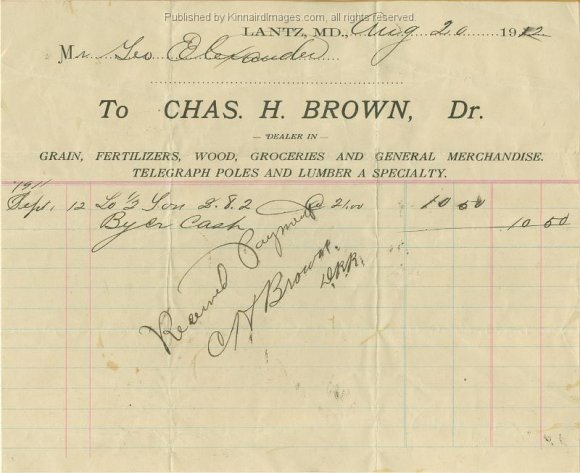 Published by KinnairdImages.com, all rights reserved.
LANTZ, MD., Aug 20 1912
Mr Geo Elexander
To CHAS. H. BROWN, Dr.
— DEALER IN —
GRAIN, FERTILIZERS, WOOD, GROCERIES AND GENERAL MERCHANDISE.
TELEGRAPH POLES AND LUMBER A SPECIALTY.
1911
Sept. 12 To ½ Ton 2.8.2 @ 21.00 10 50
By Cash 10 50
Received Payment
C H Brown.